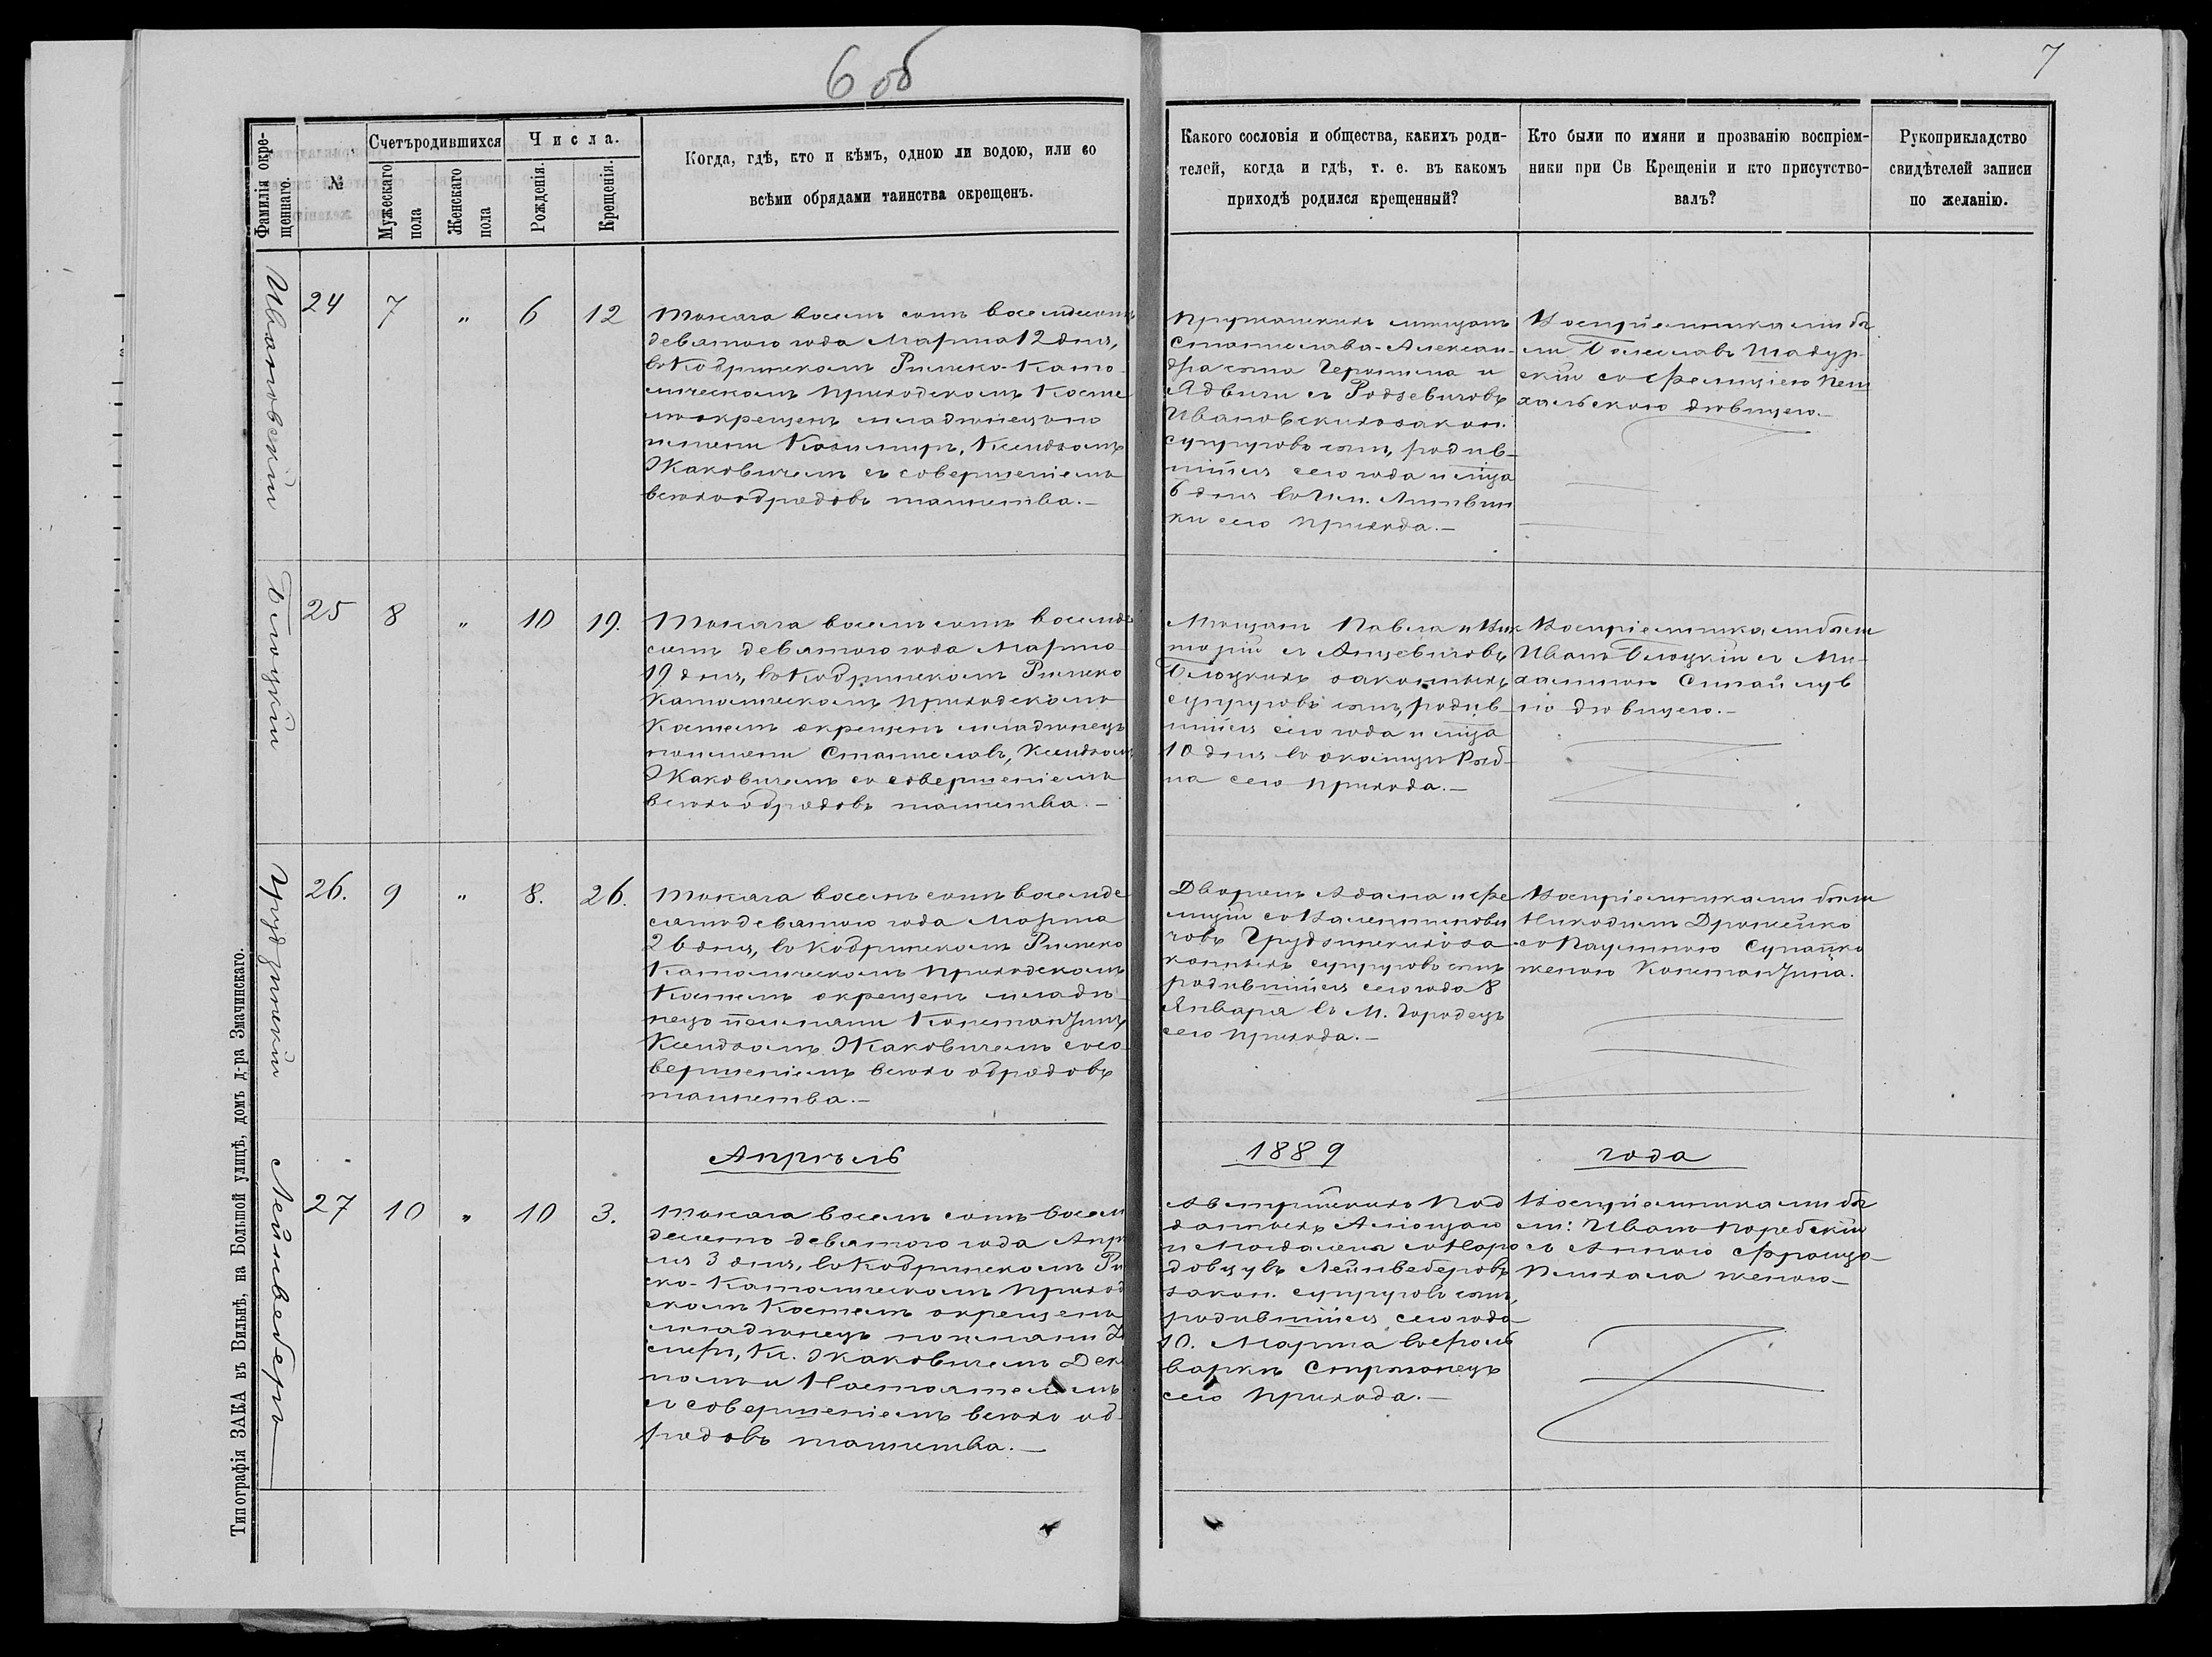 6 об
7
Фамилія окре-
щеннаго.
№
Счетъ родившихся
Мужескаго
пола
Женскаго
пола
Числа.
Рожденія.
Крещенія.
Когда, гдѣ, кто и кѣмъ, одною ли водою, или со
всѣми обрядами таинства окрещенъ.
Какого сословія и общества, какихъ роди-
телей, когда и гдѣ, т. е. въ какомъ
приходѣ родился крещенный?
Кто были по имяни и прозванію воспріем-
ники при Св Крещеніи и кто присутство-
валъ?
Рукоприкладство
свидѣтелей записи
по желанію.
Ивановскій
24
7
"
6
12
Тысяча восемь сотъ восемдесятъ
девятого года Марта 12 дня,
въ Кобринскомъ Римско-Като-
лическомъ приходскомъ Косте
лѣ окрещенъ младенецъ по
имени Казимиръ, Ксендзомъ
Жаковичемъ съ совершеніемъ
всѣхъ обрядовъ таинства.—
Пружанскихъ мѣщанъ
Станислава-Алексан-
дра сына Геронима и
Ядвиги съ Родзевичовъ
Ивановскихъ закон.
супруговъ сынъ, родив-
шійся сего года и мѣца
6 дня въ Им. Литвин
ки сего прихода.—
Воспріемниками бы
ли Болеславъ Шадур-
скій съ Фелиціею
дѣвицею.—
Блоцкій
25
8
"
10
19.
Тысяча восемь сотъ восемде
сятъ девятого года Марта
19 дня, въ Кобринскомъ Римско
Католическомъ приходскомъ
Костелѣ окрещенъ младенецъ
по имени Станиславъ, Ксендзомъ
Жаковичемъ со совершеніемъ
всѣхъ обрядовъ таинства.—
Мѣщанъ Павла и Вик
торіи съ Янцевичовъ
Блоцкихъ законныхъ
супруговъ сынъ, родив-
шійся сего года и мѣца
10 дня въ околицѣ Рыб-
на сего прихода.—
Воспріемниками были
Иванъ Блоцкій съ
дѣвицею.—
Грудзинскій
26.
9
"
8.
26.
Тысяча восемь сотъ восемде
сятъ девятого года Марта
26 дня, въ Кобринскомъ Римско
Католическомъ приходскомъ
Костелѣ окрещенъ младе-
нецъ по имяни Константинъ,
Ксендзомъ Жаковичемъ со со-
вершеніемъ всѣхъ обрядовъ
таинства.—
Дворянъ Адама и Фе
лиціи съ Валентинови
човъ Грудзинскихъ за
конныхъ супруговъ сынъ
родившійся сего года 8
Января въ М. Городецъ
сего прихода.—
Воспріемниками были
Никодимъ Дрожейко
съ Паулиною Супанко
женою Константина.
Апрѣль
1889
года
Лейнвеберъ
27
10
"
10
3.
Тысяча восемь сотъ восем
десятъ девятого года Апрѣ
ля 3 дня, въ Кобринскомъ Рим
ско-Католическомъ приход
скомъ Костелѣ окрещенъ
младенецъ по имяни
Кс. Жаковичемъ Дека
номъ и Настоятелемъ
съ совершеніемъ всѣхъ об
рядовъ таинства.—
Австрійскихъ под
данныхъ Алоизаго
и Магдалены
Лейнвеберовъ
закон. супруговъ сынъ,
родившійся сего года
10. Марта въ Фоль
варкѣ Стрженецъ
сего прихода.—
Воспріемниками бы
ли: Иванъ Поребскій
съ Анною Франца
женою—
Типографія ЗАКА въ Вильнѣ, на Большой улицѣ, домъ д-ра Змачинскаго.